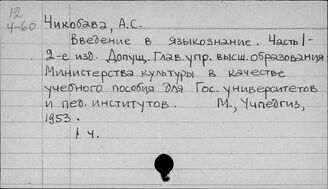 12
4-60
Чикобава, А.С.
Введение в языкознание. Часть I-
2-е изд. Допущ. Глав. упр. высш. образования
Министерства культуры в качестве
учебного пособия для Гос. университетов
и пед. институтов. М., Учпедгиз,
1953.
1 ч.